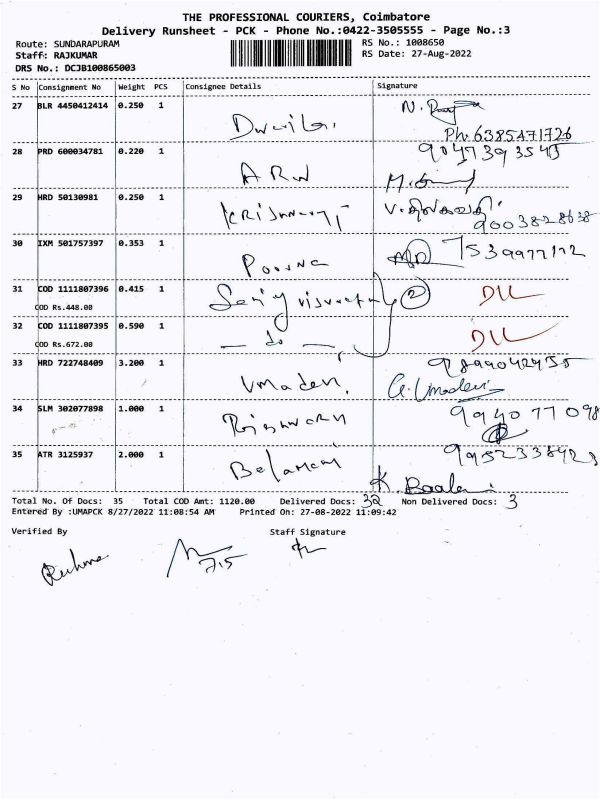 THE PROFESSIONAL COURIERS, Coimbatore
Delivery Runsheet - PCK - Phone No.:0422-3505555 - Page No.:3
Route: SUNDARAPURAM RS No.: 1008650
Staff: RAJKUMAR RS Date: 27-Aug-2022
DRS No.: DCJB100865003
S No Consignment No Weight PCS Consignee Details Signature
27 BLR 4450412414 0.250 1
Ph: 6385471726
28 PRD 600034781 0.220 1
29 HRD 50130981 0.250 1
9003828638
30 IXM 501757397 0.353 1 Poorna
31 COD 1111807396 0.415 1 2
COD Rs.448.00
32 COD 1111807395 0.590 1 — do —
COD Rs.672.00
33 HRD 722748409 3.200 1 Umadevi G. Umadevi
34 SLM 302077898 1.000 1 994077098
35 ATR 3125937 2.000 1
Total No. Of Docs: 35 Total COD Amt: 1120.00 Delivered Docs: 32 Non Delivered Docs: 3
Entered By :UMAPCK 8/27/2022 11:08:54 AM Printed On: 27-08-2022 11:09:42
Verified By Staff Signature